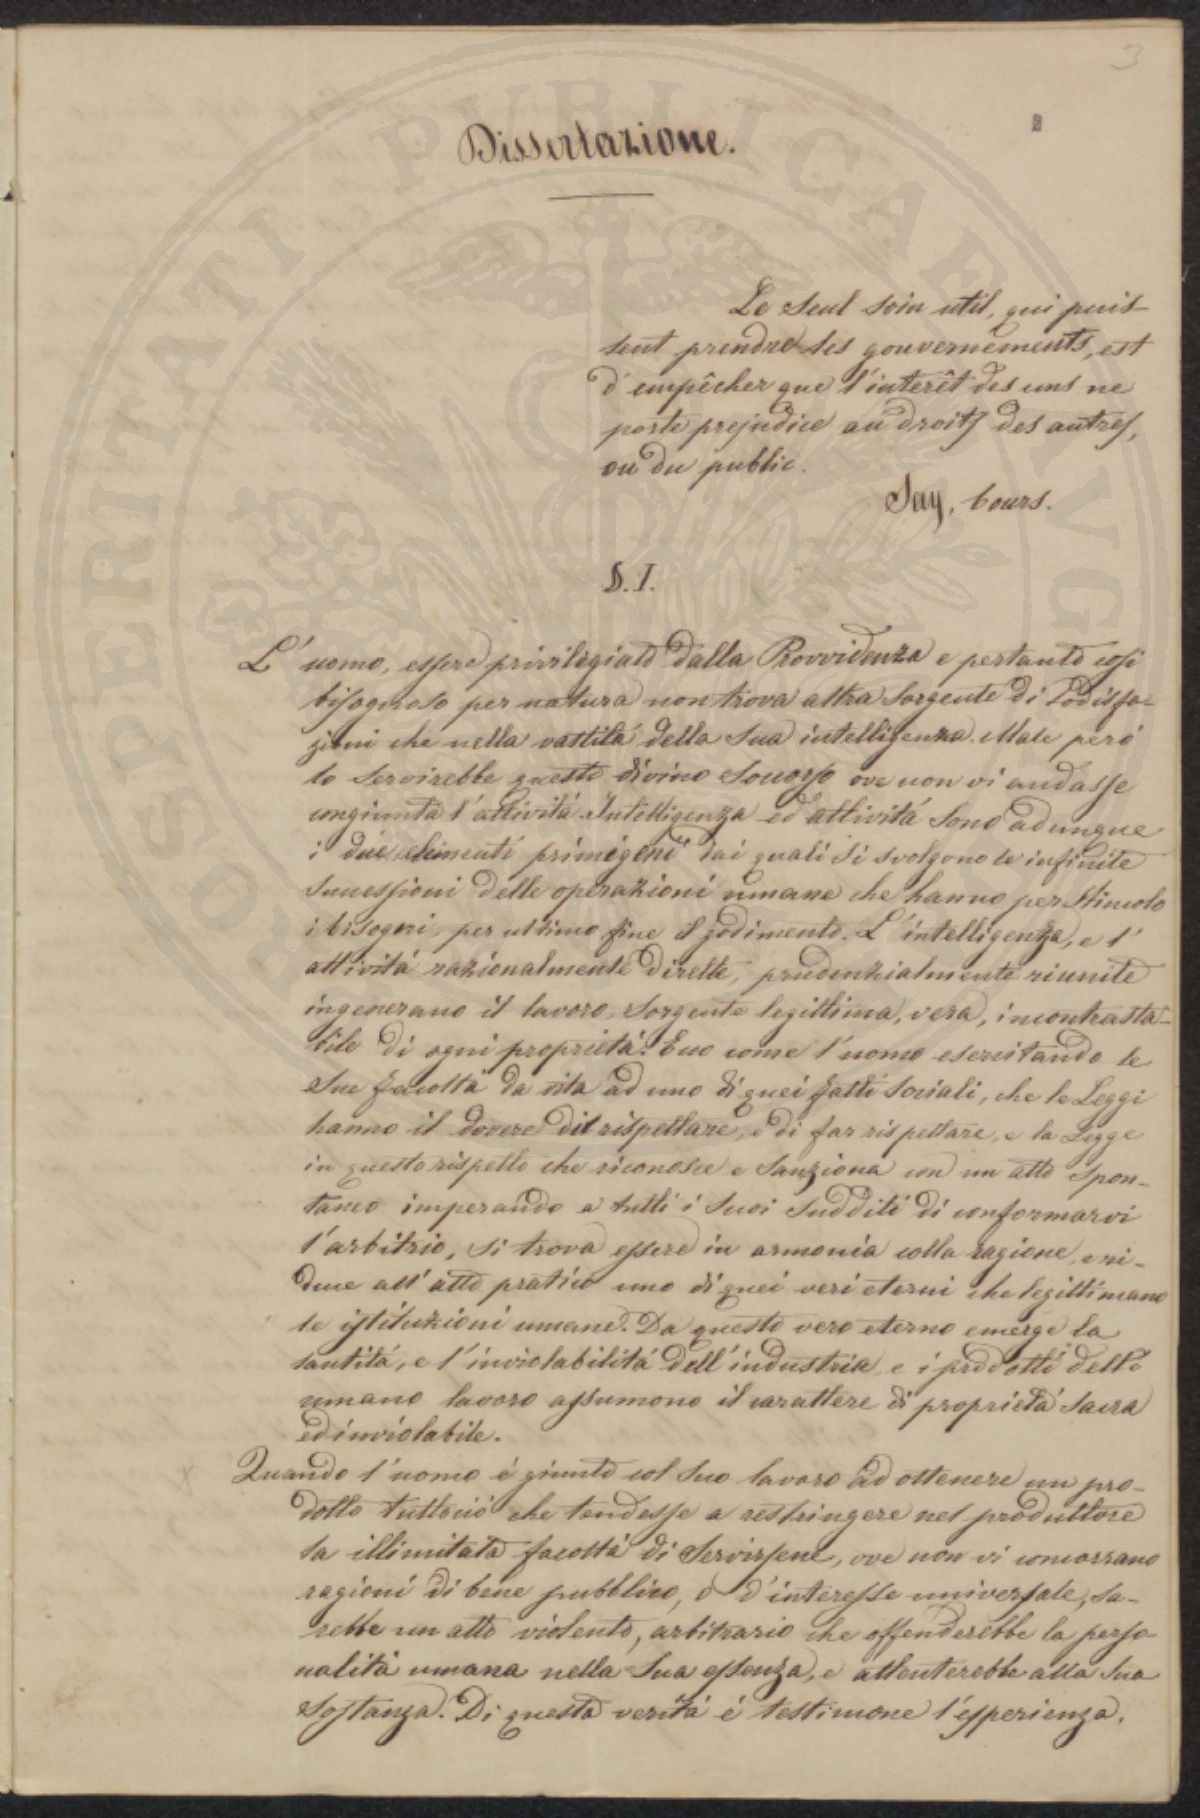 3
2
Dissertazione.
Le seul soin util, qui puis-
sent prendre les gouvernements, est
d'empêcher que l'interêt des uns ne
porte prejudice au droits des autres,
ou du public.
Say, Cours.
§. I.
L'uomo, essere privilegiato dalla Provvidenza e pertanto così
bisognoso per natura non trova altra sorgente di sodisfa-
zioni che nella vastità della sua intelligenza. Male però
lo servirebbe questo divino soccorso ove non vi andasse
congiunta l'attività. Intelligenza ed attività sono adunque
i due elementi primigeni dai quali si svolgono le infinite
successioni delle operazioni umane che hanno per stimolo
i bisogni, per ultimo fine il godimento. L'intelligenza, e l'
attività razionalmente dirette, prudenzialmente riunite
ingenerano il lavoro, sorgente legittima, vera, incontrasta-
bile di ogni proprietà. Ecco come l'uomo esercitando le
sue facoltà da vita ad uno di quei fatti sociali, che le Leggi
hanno il dovere di rispettare, e di far rispettare, e la Legge
in questo rispetto che riconosce e sanziona con un atto spon-
taneo imperando a tutti i suoi sudditi di conformarvi
l'arbitrio, si trova essere in armonia colla ragione, e ri-
duce all'atto pratico uno di quei veri eterni che legittimano
le istituzioni umane. Da questo vero eterno emerge la
santità, e l'inviolabilità dell'industria, e i prodotti dello
umano lavoro assumono il carattere di proprietà sacra
ed inviolabile.
Quando l'uomo è giunto col suo lavoro ad ottenere un pro-
dotto tuttociò che tendesse a restringere nel produttore
la illimitata facoltà di servirsene, ove non vi concorrano
ragioni di bene pubblico, o d'interesse universale, sa-
rebbe un atto violento, arbitrario che offenderebbe la perso-
nalità umana nella sua essenza, e attenterebbe alla sua
sostanza. Di questa verità è testimone l'esperienza.
PROSPERITATI PUBLICAE AUG